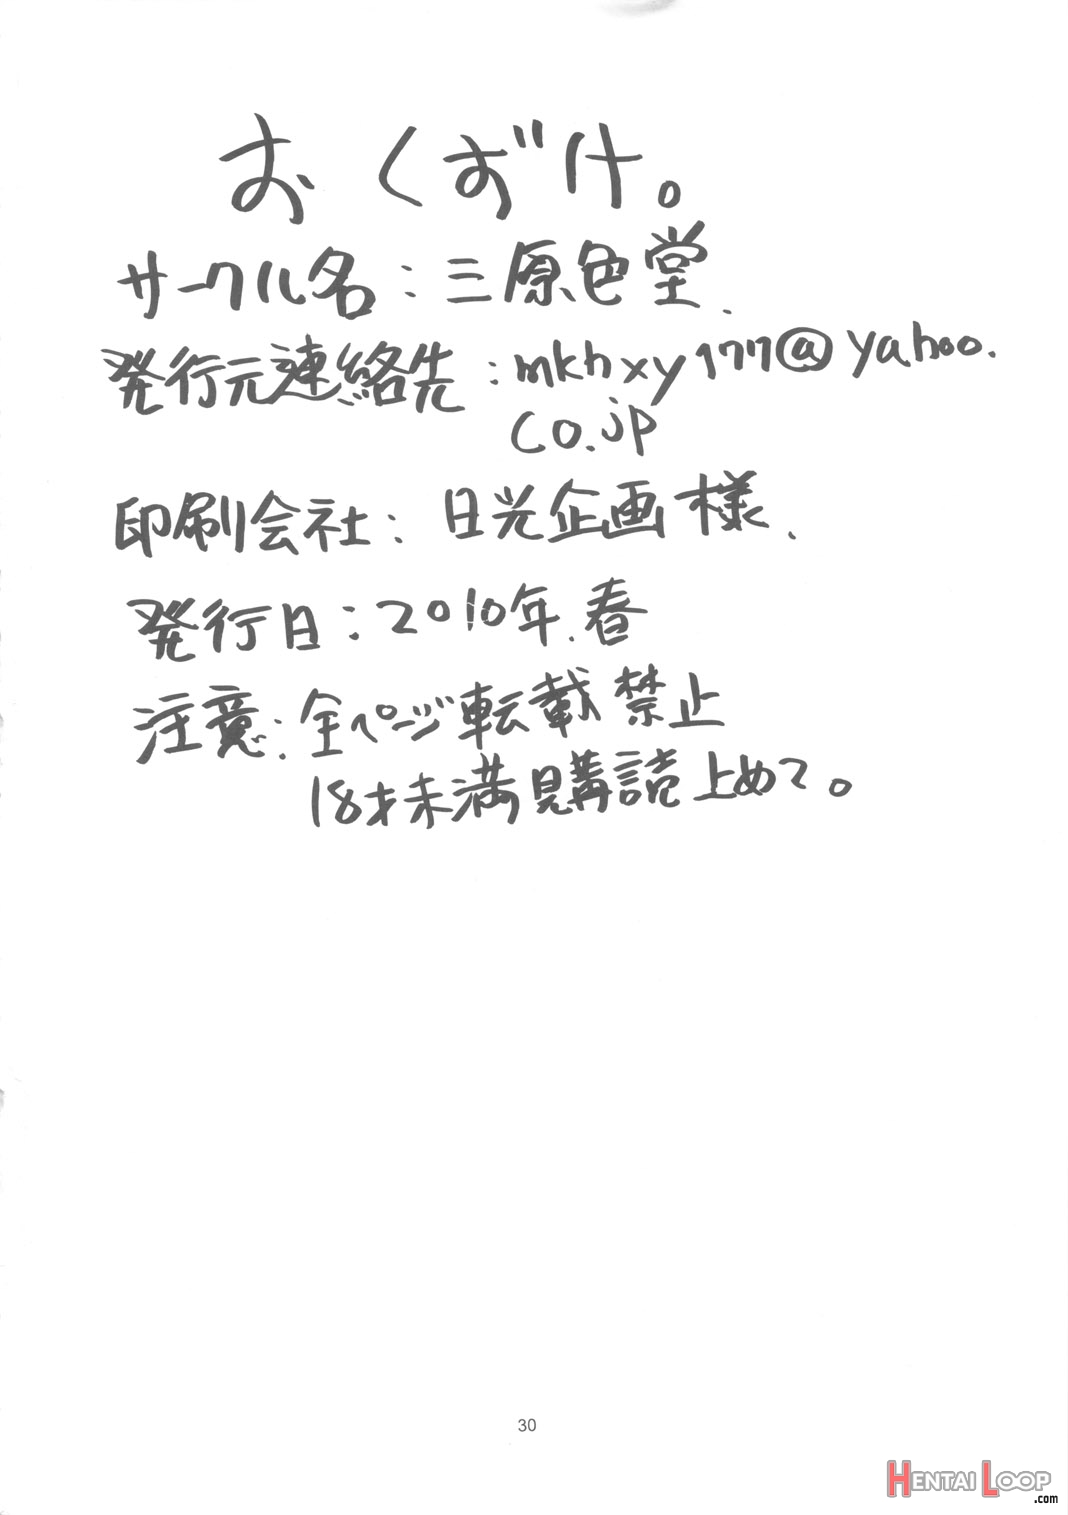 おくずけ。
サークル名：三原色堂.
発行元連絡先：mkhxy177@yahoo.
co.jp
印刷会社：日光企画様.
発行日：2010年.春
注意：全ページ転載禁止
18才未満見購読止めて。
30
HENTAI LOOP
.com